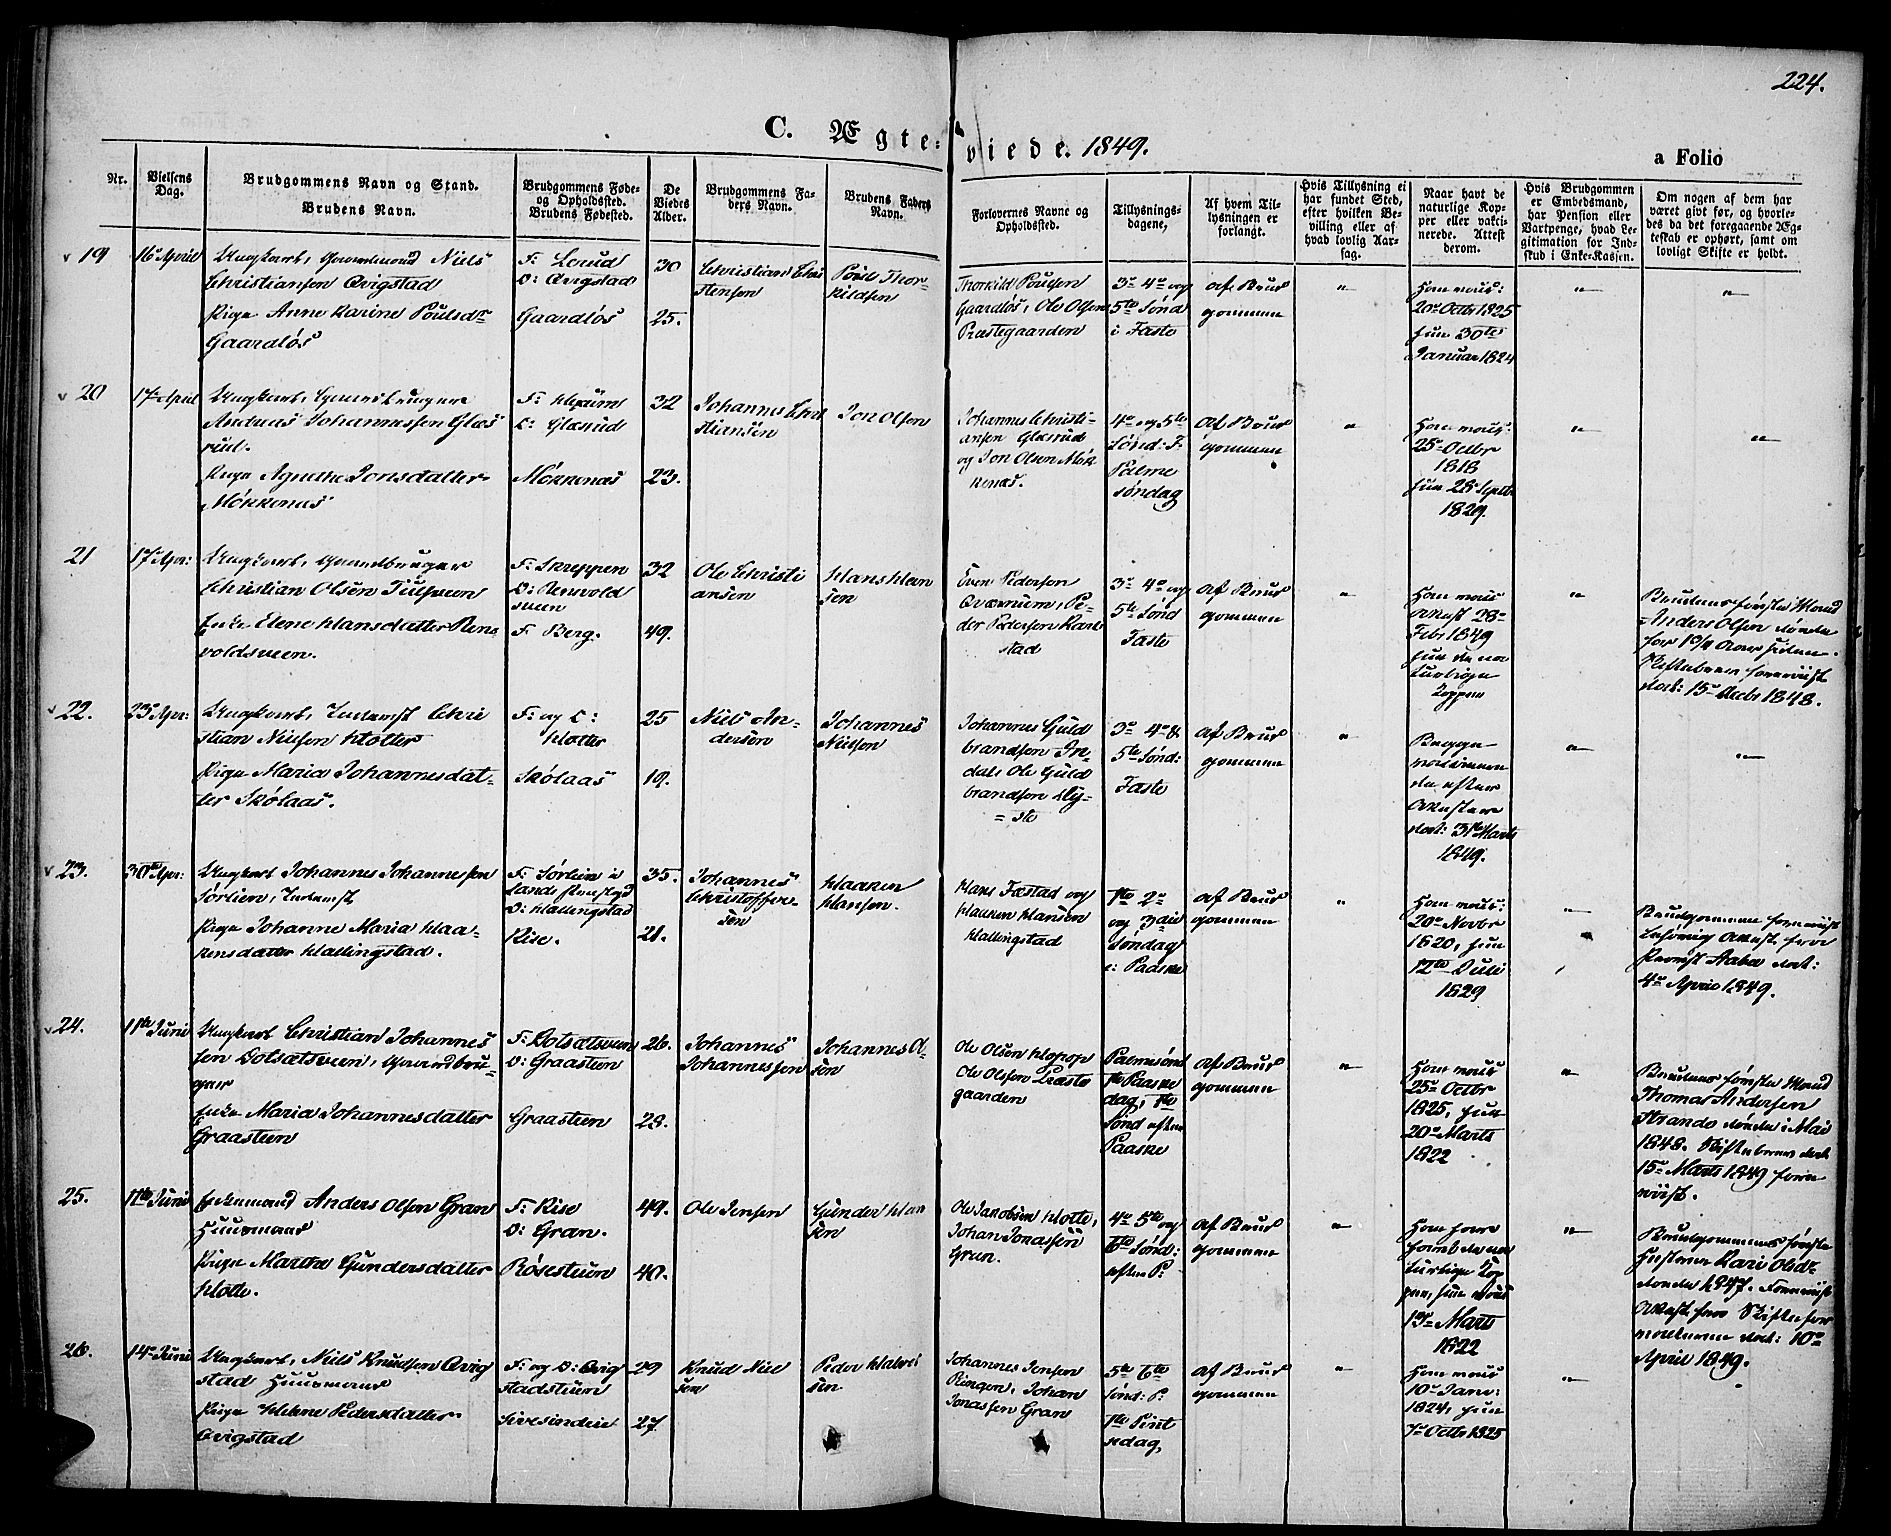 224.
C. Ægteviede. 1849.
a Folio
Nr.
Vielsens Dag.
Brudgommens Navn og Stand.
Brudens Navn.
Brudgommens Føde- og Opholdssted.
Brudens Fødested.
De Viedes Alder.
Brudgommens Faders Navn.
Brudens Faders Navn.
Forlovernes Navne og Opholdssted.
Tillysningsdagene,
Af hvem Tillysningen er forlangt.
Hvis Tillysning ei har fundet Sted, efter hvilken Bevilling eller af hvad lovlig Aarsag.
Naar havt de naturlige Kopper eller vaktinerede. Attest derom.
Hvis Brudgommen er Embedsmand, har Pension eller Vartpenge, hvad Legitimation for Indskud i Enke-Kassen.
Om nogen af dem har været givt før, og hvorledes da det foregaaende Ægteskab er ophørt, samt om lovligt Skifte er holdt.
19
16 April
Ungkarl, Gaardmand Niels
Christiansen Qvigstad
Pige Anne Karine Poulsdr
Gaardløs
F: Lerud
O: Qvigstad
Gaardløs
30
25.
Christian Christensen
Poul Thorkildsen
Thorkild Poulsen
Gaardløs, Ole Olsen
Præstegaarden
3de 4de og
5te Sønd
i Faste
af Brudgommen
"
Ham vacc:
20de Octbr 1825
hun 30te
Januar 1824
"
"
20
17de April
Ungkarl,
Andreas Johannessen Glæsrud.
Pige Agnethe Jonsdatter
Mökkenæs
O: Glæsrud
Mökkenæs
32
23.
Johannes Christiansen
Jon Olsen
Johannes Christiansen Glæsrud
og Jon Olsen Mökkenæs.
4de og 5te
Sønd: F:
Palmesøndag
af Brudgommen
"
Ham vacc:
25de Octbr
1818
hun 28de Septbr
1829.
"
"
21
17de Apr:
Ungkarl, Gaardbruger
Christian Olsen
Enke Elene Hansdatter Renvoldsveen.
F: Skreppen
O: Renvoldsveen
F. Berg.
32
49.
Ole Christiansen
Hans Hansen
Even Pedersen
Qværnum, Peder Pedersen
3de 4de og
5te Sønd
Faste
af Brudgommen
"
Ham vacc
Attest 28de
Febr 1849
hun de naturlige
Kopper
"
Brudens første Mand
Anders Olsen døde
for 1 3/4 Aar siden.
Skiftebrev foreviist
dat: 15de Decbr 1848.
22.
23de Apr:
Ungkarl, Inderst Christian Nielsen Hotter
Pige Maria Johannesdatter Skölaas.
F: og O:
Hotter
Skölaas
25
19.
Niels Andersen
Johannes
Nielsen
Johannes Guldbrandsen
Ole Guldbrandsen
3de 4de &
5te Sønd:
Faste
af Brudgommen
"
Begge
vaccinerede
efter
Attester
dat: 31te Marts
1849.
"
"
23.
30te Apr:
Ungkarl Johannes Johannesen
Sørlien, Inderst
Pige Johanne Maria Haakensdatter Hallingstad.
F: Sørlien i
Lands Præstgd
O: Hallingstad
Rise.
35.
21.
Johannes
Christoffersen
Haaken
Hansen.
Hans Fæstad og
Haaken Hansen
Hallingstad
1te 2de
og 3die
Søndag
e: Paaske
af Brudgommen
"
Ham vacc:
20de Novbr
1820, hun
12te Juli
1829
"
Brudgommen foreviist
Attest fra
Provst Aabel dat:
4de April 1849.
24.
11te Juni
Ungkarl Christian Johannessen Dotsætsveen, Gaardbruger
Enke Maria Johannesdatter
Graasteen
F: Dotsætsveen
O: Graasteen
Graasteen
26.
28.
Johannes
Johannessen
Johannes Olsen
Ole Olsen
Ole Olsen Præstegaarden
Palmesønd
1te Paaskedag, 1te
Sønd efter
Paaske
af Brudgommen
"
Ham vacc:
25de Octbr
1825, hun
20de Marts
1822
"
Brudens første Mand
Thomas Andersen
Strande døde i Mai
1848. Skiftebrev dat
15de Marts 1849 foreviist.
25.
11te Juni
Enkemand Anders Olsen Gran
Huusmand
Pige Marthe Gundersdatter
Hotte.
F: Rise
O: Gran.
Røsesteen
49.
40.
Ole Jensen
Gunder Hansen
Ole Jacobsen Hotte,
Johan Jonassen
Gran.
4de 5te og
6te Sønd:
efter P:
af Brudgommen
"
Ham har
havt de naturlige Kopper, hun vacc
13de Marts
1822
"
Brudgommens første
Hustrue Kari Olsdr
døde 1847. Foreviist
Attest fra Skifteforvalteren dat: 10de
April 1849.
26.
14de Juni
Ungkarl, Niels Knudsen Qvigstad Huusmand
Pige Helene Pedersdatter
Qvigstad
F: og O: Qvigstadsteen
Sivesindeie
29
27.
Knud Nielsen
Peder Halvorsen
Johannes Jensen
Ringen, Johan
Jonassen Gran
5te 6te
Sønd: P:
1te Pintsedag,
af Brudgommen
"
Ham vacc
10de Janr:
1824, hun
7de Octbr 1825
"